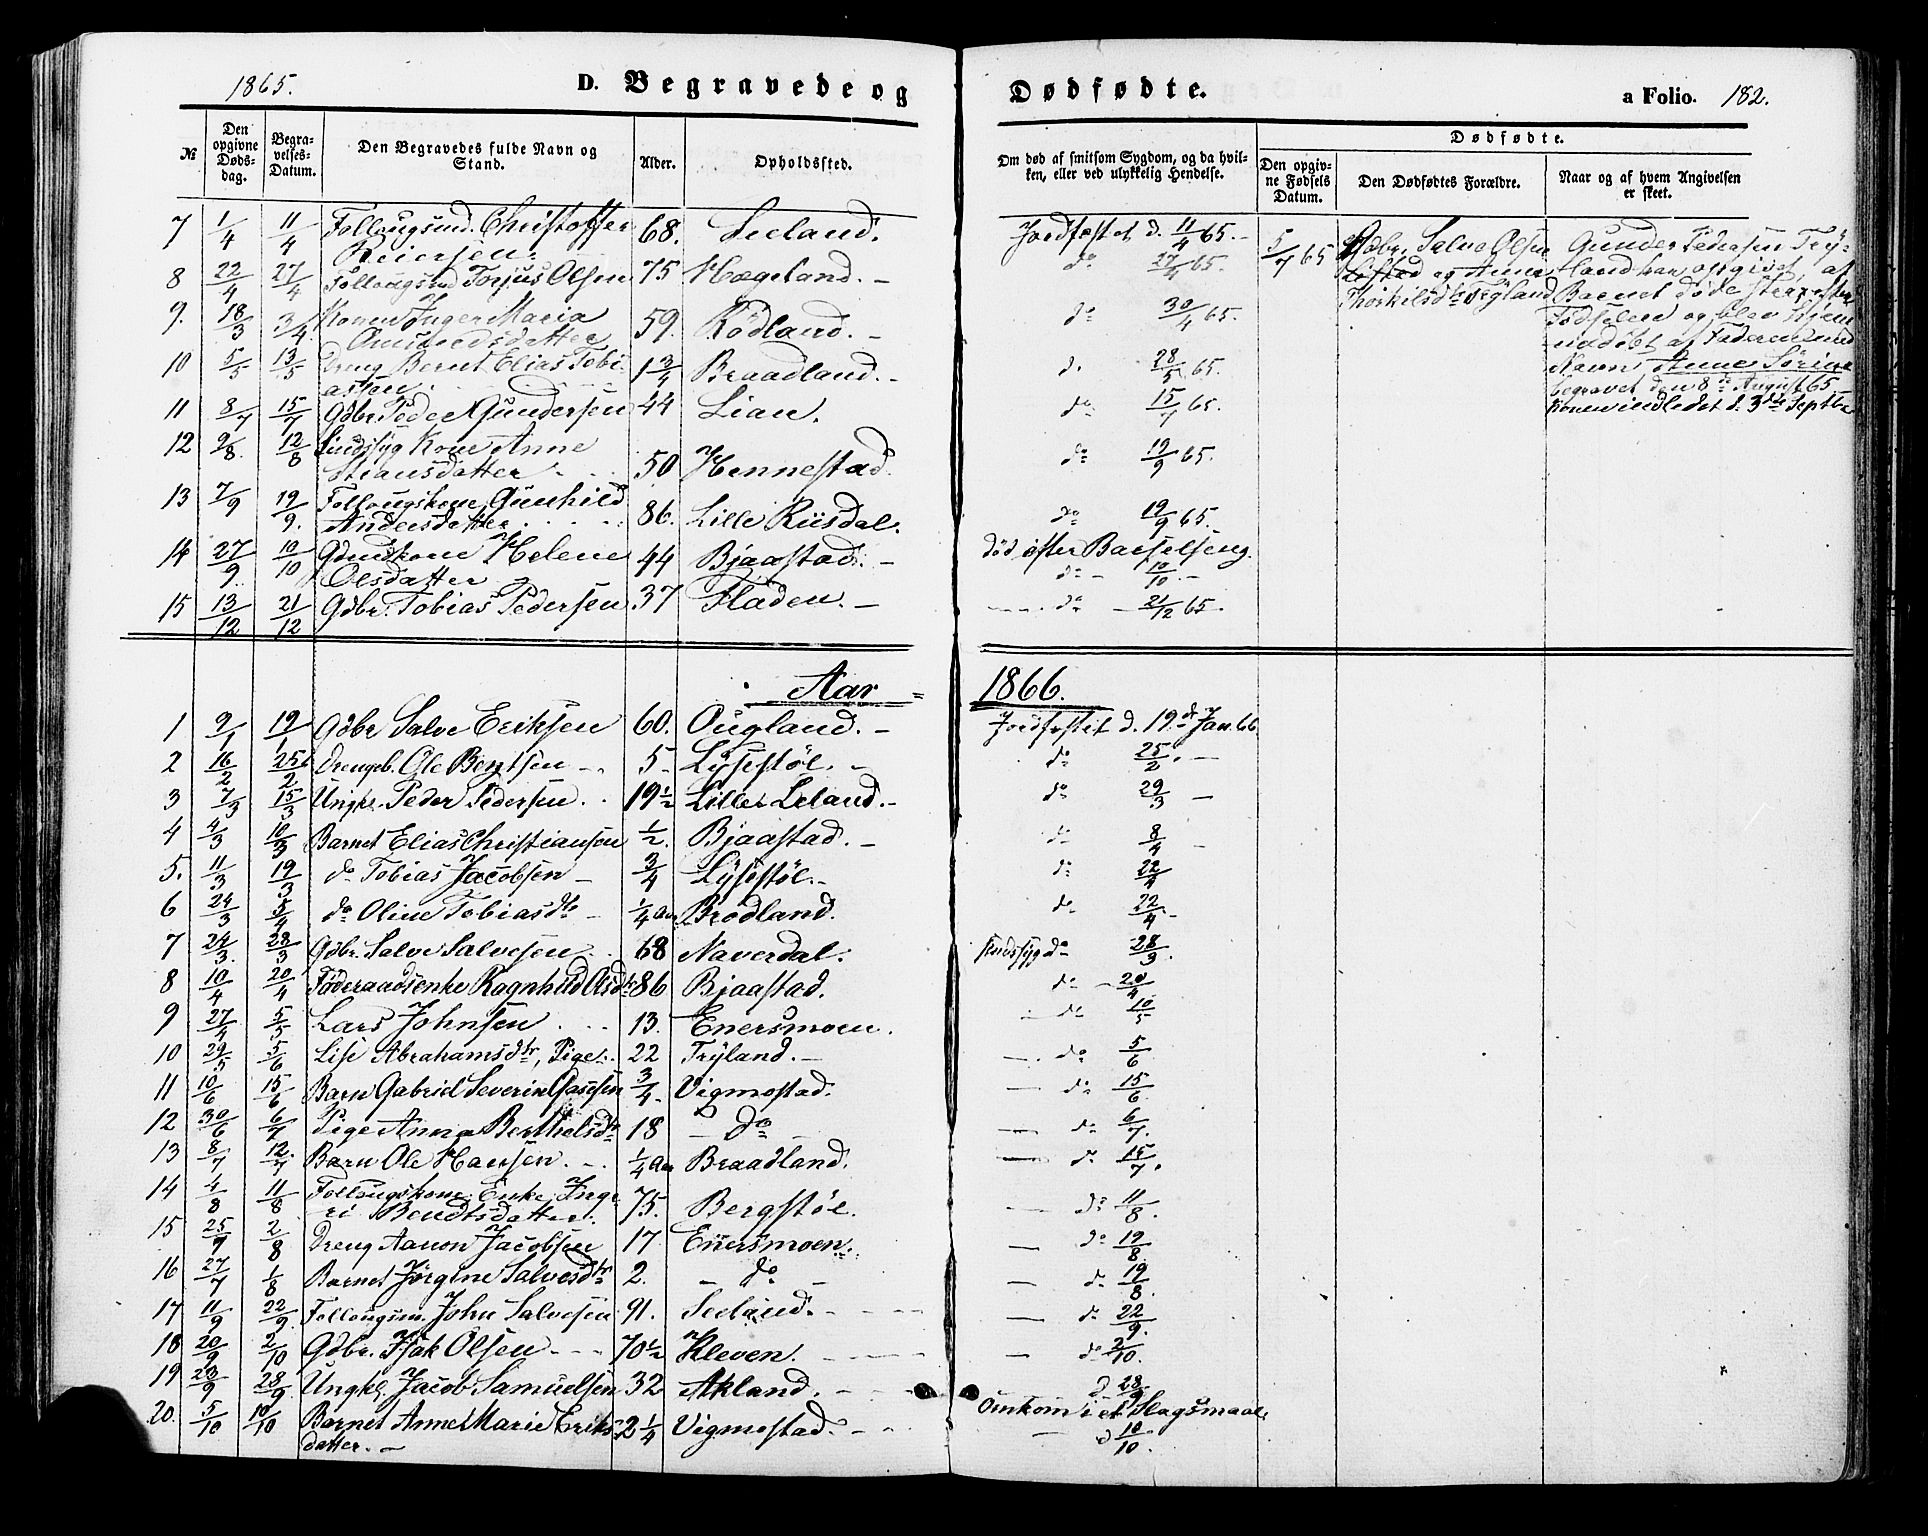 1865. D. Begravede og Dødfødte. a Folio. 182.
№ | Den opgivne Døds-dag. | Begra-velses-Datum. | Den Begravedes fulde Navn og Stand. | Alder. | Opholdssted. | Om død af smitsom Sygdom, og da hvil-ken, eller ved ulykkelig Hendelse. | Dødfødte. | Den opgiv-ne Fødsels Datum. | Den Dødfødtes Forældre. | Naar og af hvem Angivelsen er skeet.
7 1/4 11/4 Follougsmd. Christoffer Reiersen. 68. Seeland. Jordfæstet d. 11/4 65.
8 22/4 27/4 Follougsmd Torjus Olsen 75 Hægeland. do 27/4 65.
9. 18/3 3/4 Konen Inger Maria Omundsdatter 59. Rödland. do 30/4 65.
10 5/5 13/5 Dreng Bernt Elias Tobi-assen 1 3/4 Braadland. d. 28/5 65.
11 8/7 15/7 Gdbr. Peder Gundersen 44 Lian. do 15/7 65.
12 9/8. 12/8 Sindssyg Kone Anne Stiansdatter 50 Hennestad do 19/9 65.
13 7/9 19/9. Follougskone Gunhild Andersdatter 86. Lille Riisdal. do 19/9 65.
14 27/9 10/10 Gdmdskone Helene Olsdatter 44 Bjaastad. død efter Barselseng. do 10/10.
15 13/12 21/12 Gdbr. Tobias Pedersen 37 Fladen. do 21/12 65.
5/7 65 Gdbr. Salve Olsen og Anne Thorkilsdtr Tryland
Gunder Pedersen Try-
land har opgivet, at
Barnet døde strax efter
Fødselen og blev hjem-
medøbt af Faderen med
Navn Anne Sørine
begravet den 8de August 65
Konen indledet d. 3die Septbr
Aar 1866.
1 9/1 19/1 Gdbr Salve Eriksen 60. Ougland. Jordfæstet d. 19de Jan. 66
2 16/2 25/2 Drengeb. Ole Bentsen 5 Lysestøl. do 25/2.
3 7/3 15/3 Ungkr. Peder Pedersen 19 1/2 Lille Leland. do 29/3
4 4/3 10/3 Barnet Elias Christiansen 1/2. Bjaastad. do 8/4
5. 11/3 19/3 do Tobias Jacobsen 3/4 Lysestøl. do 22/4
6 24/3 5/4 do Oline Tobiasdtr 1/4 Aar Brodland. do 22/4.
7 24/3. 28/3 Gdbr. Salve Salvesen 68 Naverdal. Sindssyg do 28/3.
8 10/4 20/4 Føderaadsenke Ragnhild Asdtr 86 Bjaastad. do 20/4.
9 27/4 5/5 Lars Johnsen 13. Enersmoen. do 10/5
10 29/5 5/6 Lise Abrahamsdtr, Pige. 22 Tryland. do 5/6
11 10/6 15/6 Barn Gabriel Severin Aasesen 3/4. Vigmostad. do 15/6.
12 30/6 6/7 Pige Anna Berthelsdtr 18 do do 6/7.
13 8/7 12/7 Barn Ole Hansen. 1/4 Aar Braadland. d. 15/7.
14 4/8 11/8 Follougskone Enke Inge-ri Bendtsdatter. 75. Bergstøl. do 11/8.
15 25/7 2/8 Dreng Aanon Jacobsen 17 Enersmoen. do 19/8.
16 27/7 1/8 Barnet Jørgine Salvesdtr 2. do d. 19/8.
17 11/9 22/9. Follougsm. John Salvesen 91. Seeland. do 22/9.
18 20/9 2/10 Gdbr. Isak Olsen 70 1/2 Kleven. do 2/10.
19 23/9 28/9 Ungkl. Jacob Samuelsen 32 Akland. d 28/9 Omkom i et Slagsmaal.
20. 5/10 10/10 Barnet Anne Marie Eriks-datter. 2 1/4 Vigmostad. d 10/10.